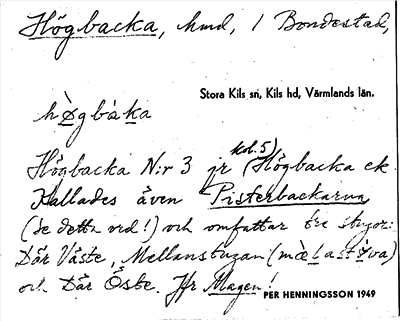 Högbacka, hmd, i Bondestad,
Stora Kils sn, Kils hd, Värmlands län.
hø̀gbàka
kbl. 5)
Högbacka N:r 3 jr (Högbacka ek.
Kallades även Pisterbackarna
(se detta ord!) och omfattar tre stugor:
Där Väste, Mellanstugan (mæḷastøva)
och Där Öste. Jfr Magen!
PER HENNINGSSON 1949